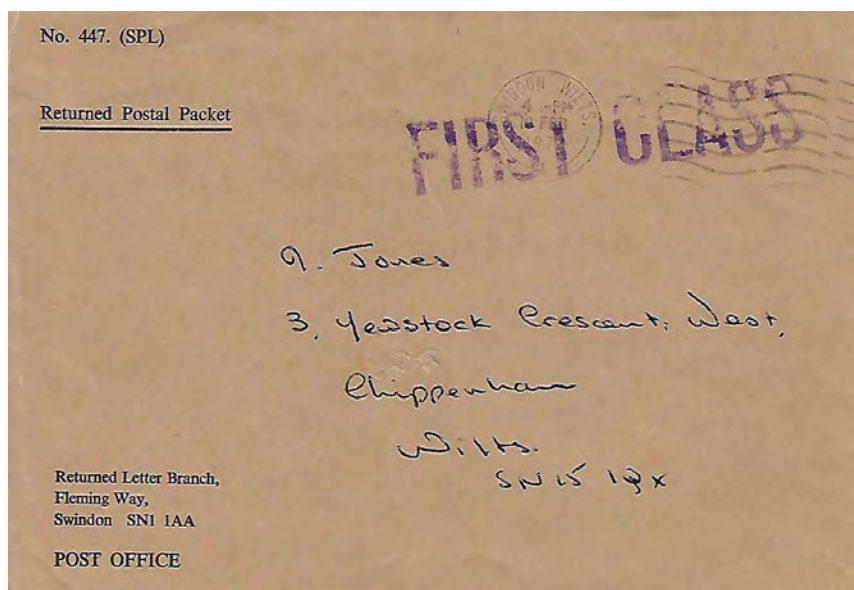 No. 447. (SPL)
Returned Postal Packet
SWINDON WILTS.
4 -PM
FEB
197
FIRST CLASS
Jones
3, Yewstock Crescent, West,
Chippenham
Wilts.
SN15 1QX
Returned Letter Branch,
Fleming Way,
Swindon SN1 1AA
POST OFFICE